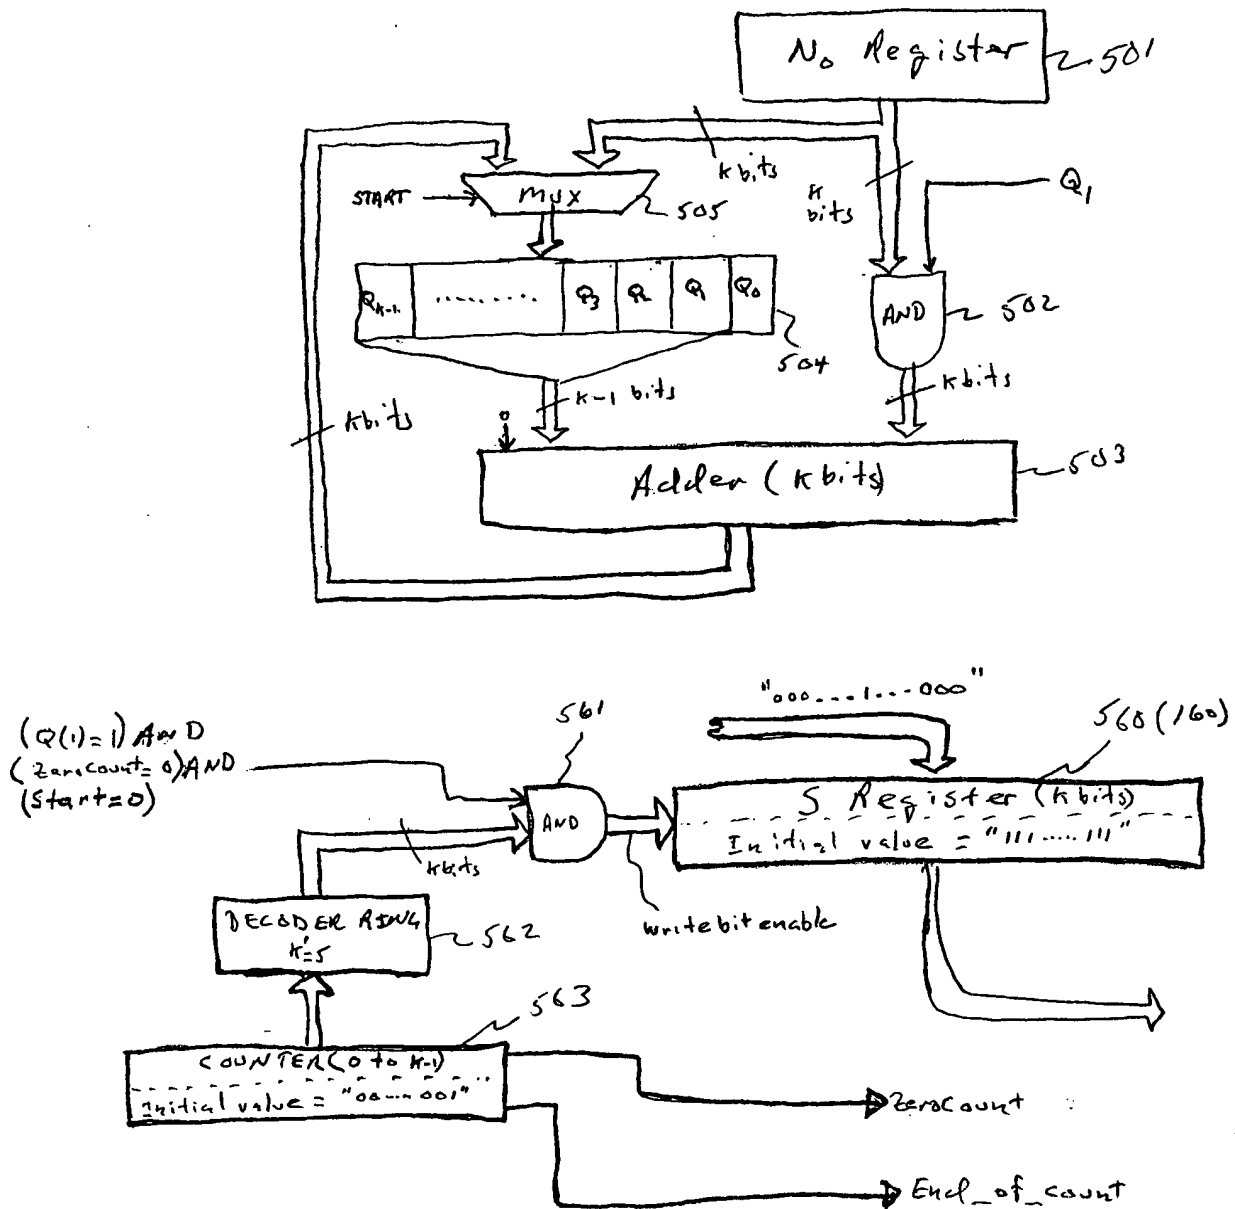 No Register
501
k bits
k
bits
START
mux
505
Q1
Qk-1
.........
Q3
Q2
Q1
Q0
504
AND
502
k-1 bits
k bits
0
k bits
Adder (k bits)
503
"000....1...000"
561
560 (160)
(Q(1)=1) AND
(Zerocount=0) AND
(Start=0)
AND
S Register (k bits)
Initial value = "111.....111"
k bits
write bit enable
DECODER RING
K'=5
562
563
COUNTER (0 to k-1)
Initial value = "00....001"
Zerocount
End_of_count